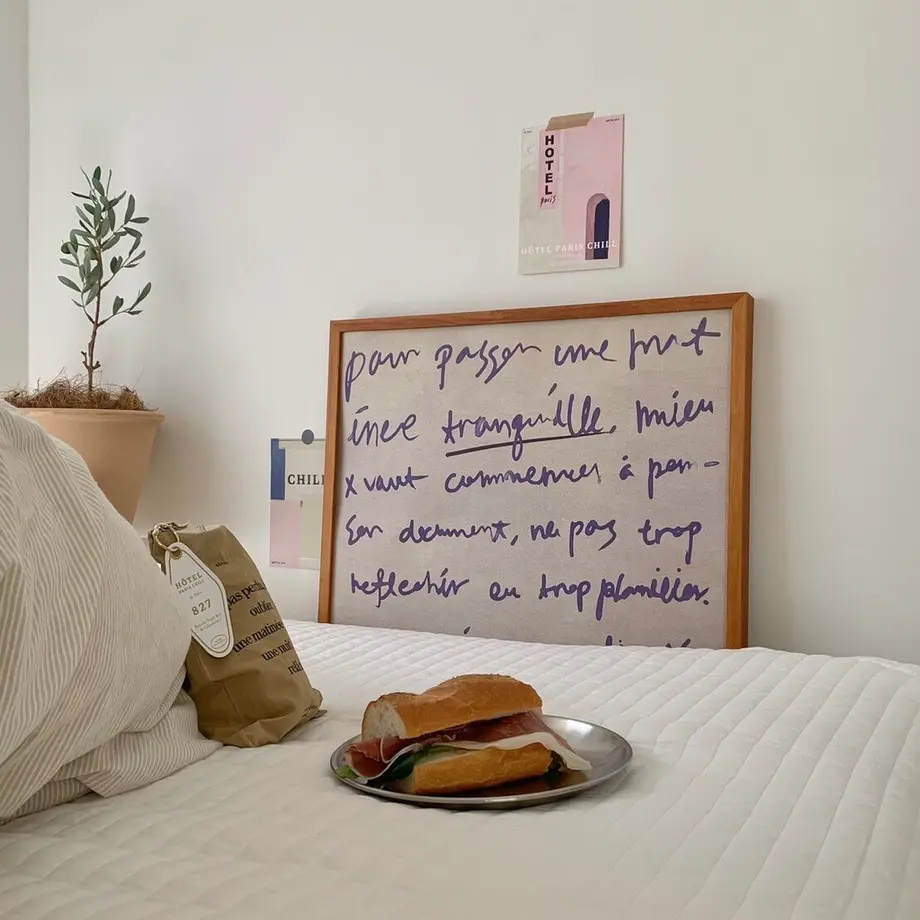 HOTEL
Paris
HÔTEL PARIS CHILL
pour passer une nuit
inee tranquille, mieu
x vaut commencer à pen-
ser doucement, ne pas trop
reflechir ou trop planifier.
CHILL
HÔTEL
PARIS CHILL
827
pas perdu
oublier
une matinée
une nuit